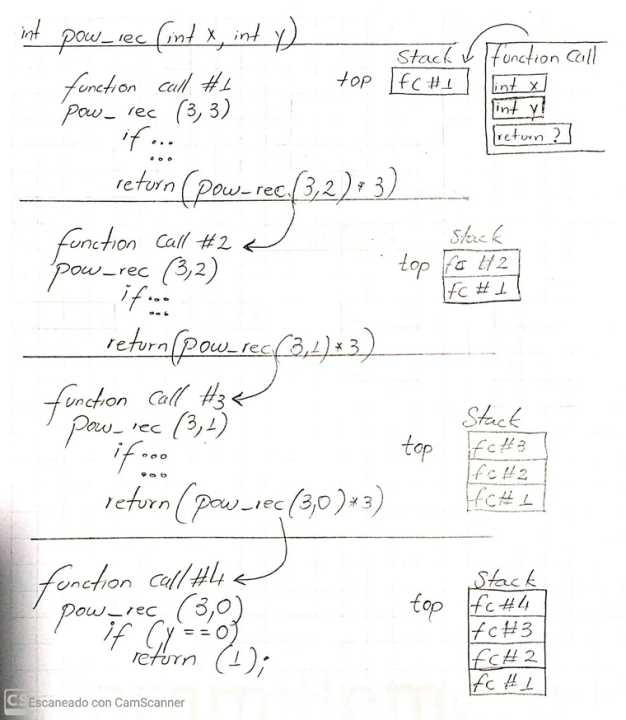 int pow_rec (int x, int y)
Stack
function Call
top
fc #1
int x
int y
return ?
function call #1
pow_rec (3,3)
if ...
...
return (pow_rec (3,2) * 3)
function call #2
pow_rec (3,2)
if ...
...
return (pow_rec (3,1) * 3)
Stack
top
fc #2
fc #1
function call #3
pow_rec (3,1)
if ...
...
return (pow_rec (3,0) * 3)
Stack
top
fc #3
fc #2
fc #1
function call #4
pow_rec (3,0)
if (y == 0)
return (1);
Stack
top
fc #4
fc #3
fc #2
fc #1
CS Escaneado con CamScanner